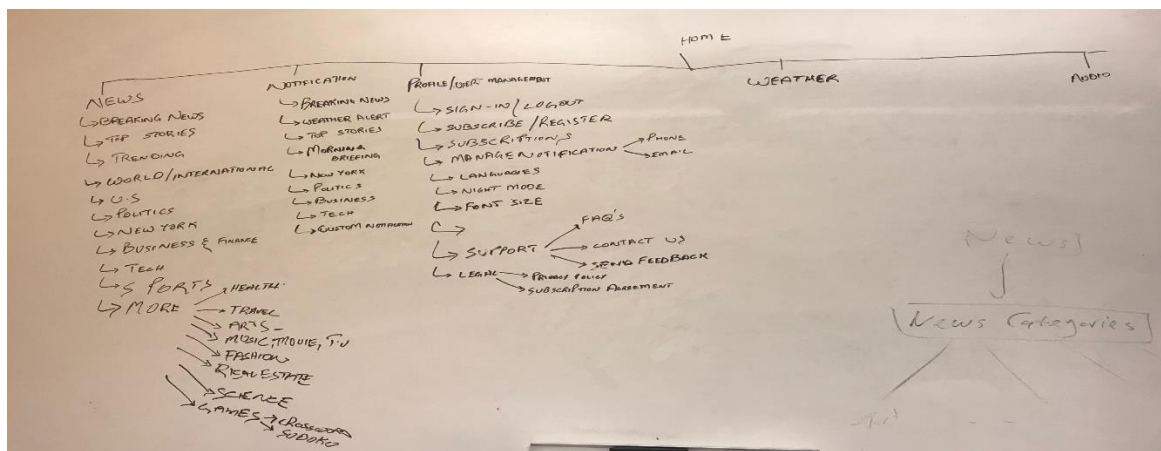 HOME
NEWS
BREAKING NEWS
TOP STORIES
TRENDING
WORLD/INTERNATIONAL
U.S
POLITICS
NEW YORK
BUSINESS & FINANCE
TECH
SPORTS
MORE
HEALTH.
TRAVEL
ARTS
MUSIC, MOVIE, T.V
FASHION
REAL ESTATE
SCIENCE
GAMES
CROSSWORD
SUDOKU
NOTIFICATION
BREAKING NEWS
WEATHER ALERT
TOP STORIES
MORNING
BRIEFING
NEW YORK
POLITICS
BUSINESS
TECH
CUSTOM NOTIFICATION
PROFILE/USER MANAGEMENT
SIGN-IN/LOGOUT
SUBSCRIBE/REGISTER
SUBSCRIPTIONS
MANAGE NOTIFICATION
PHONE
EMAIL
LANGUAGES
NIGHT MODE
FONT SIZE
SUPPORT
FAQ'S
CONTACT US
SEND FEEDBACK
LEGAL
PRIVACY POLICY
SUBSCRIPTION AGREEMENT
WEATHER
AUDIO
News
News Categories